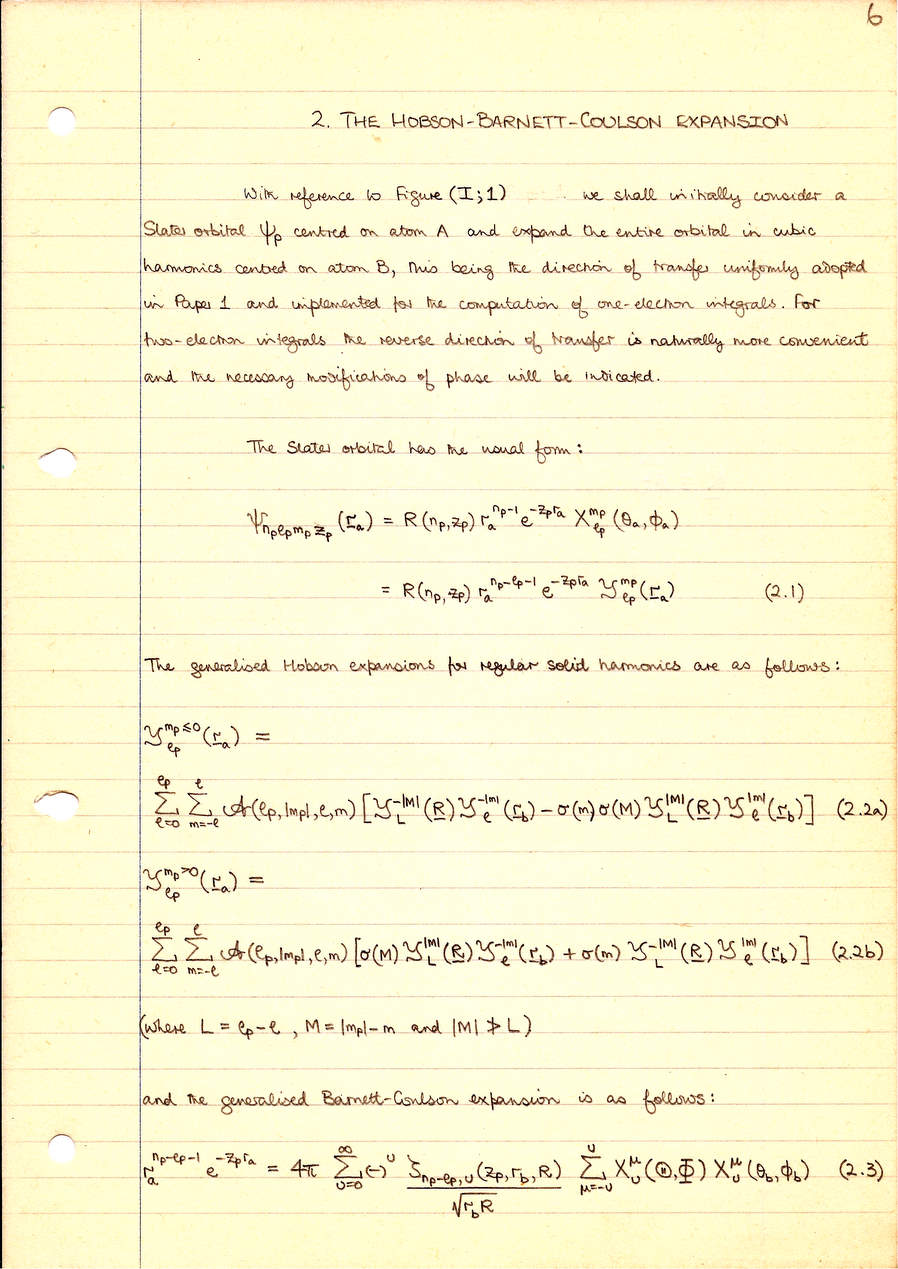 6
2. THE HOBSON-BARNETT-COULSON EXPANSION
With reference to Figure (I;1) we shall initially consider a
Slater orbital ψ_p centred on atom A and expand the entire orbital in cubic
harmonics centred on atom B, this being the direction of transfer uniformly adopted
in Paper 1 and implemented for the computation of one-electron integrals. For
two-electron integrals the reverse direction of transfer is naturally more convenient
and the necessary modifications of phase will be indicated.
The Slater orbital has the usual form:
ψ_{n_p ℓ_p m_p z_p}(r_a) = R(n_p, z_p) r_a^{n_p-1} e^{-z_p r_a} X_{ℓ_p}^{m_p}(θ_a, ϕ_a)
= R(n_p, z_p) r_a^{n_p-ℓ_p-1} e^{-z_p r_a} 𝒴_{ℓ_p}^{m_p}(r_a) (2.1)
The generalised Hobson expansions for regular solid harmonics are as follows:
𝒴_{ℓ_p}^{m_p≤0}(r_a) =
∑_{ℓ=0}^{ℓ_p} ∑_{m=-ℓ}^{ℓ} 𝒜(ℓ_p, |m_p|, ℓ, m) [𝒴_L^{-|M|}(R) 𝒴_ℓ^{-|m|}(r_b) − σ(m) σ(M) 𝒴_L^{|M|}(R) 𝒴_ℓ^{|m|}(r_b)] (2.2a)
𝒴_{ℓ_p}^{m_p>0}(r_a) =
∑_{ℓ=0}^{ℓ_p} ∑_{m=-ℓ}^{ℓ} 𝒜(ℓ_p, |m_p|, ℓ, m) [σ(M) 𝒴_L^{|M|}(R) 𝒴_ℓ^{-|m|}(r_b) + σ(m) 𝒴_L^{-|M|}(R) 𝒴_ℓ^{|m|}(r_b)] (2.2b)
(where L = ℓ_p − ℓ, M = |m_p| − m and |M| ≯ L)
and the generalised Barnett-Coulson expansion is as follows:
r_a^{n_p-ℓ_p-1} e^{-z_p r_a} = 4π ∑_{υ=0}^{∞} (−)^υ ζ_{n_p-ℓ_p, υ}(z_p, r_b, R) / √(r_b R) ∑_{μ=-υ}^{υ} X_υ^μ(Θ, Φ) X_υ^μ(θ_b, ϕ_b) (2.3)